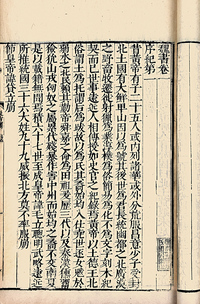 魏書卷一
序紀第一
昔黃帝有子二十五人或內列諸華或外分荒服昌意少子受封
北土國有大鮮卑山因以為號其後世為君長統幽都之北廣漠
之野畜牧遷徙射獵為業淳樸為俗簡易為化不為文字刻木紀
契而已世事遠近人相傳授如史官之紀錄焉黃帝以土德王北
俗謂土為托謂后為跋故以為氏其裔始均入仕堯世逐女魃於
弱水之北民賴其勤帝舜嘉之命為田祖爰歷三代以及秦漢獯
鬻獫狁山戎匈奴之屬累代殘暴作害中州而始均之裔不交南夏
是以載籍無聞焉積六十七世至成皇帝諱毛立聰明武略遠近
所推統國三十六大姓九十九威振北方莫不率服崩
節皇帝諱貸立崩